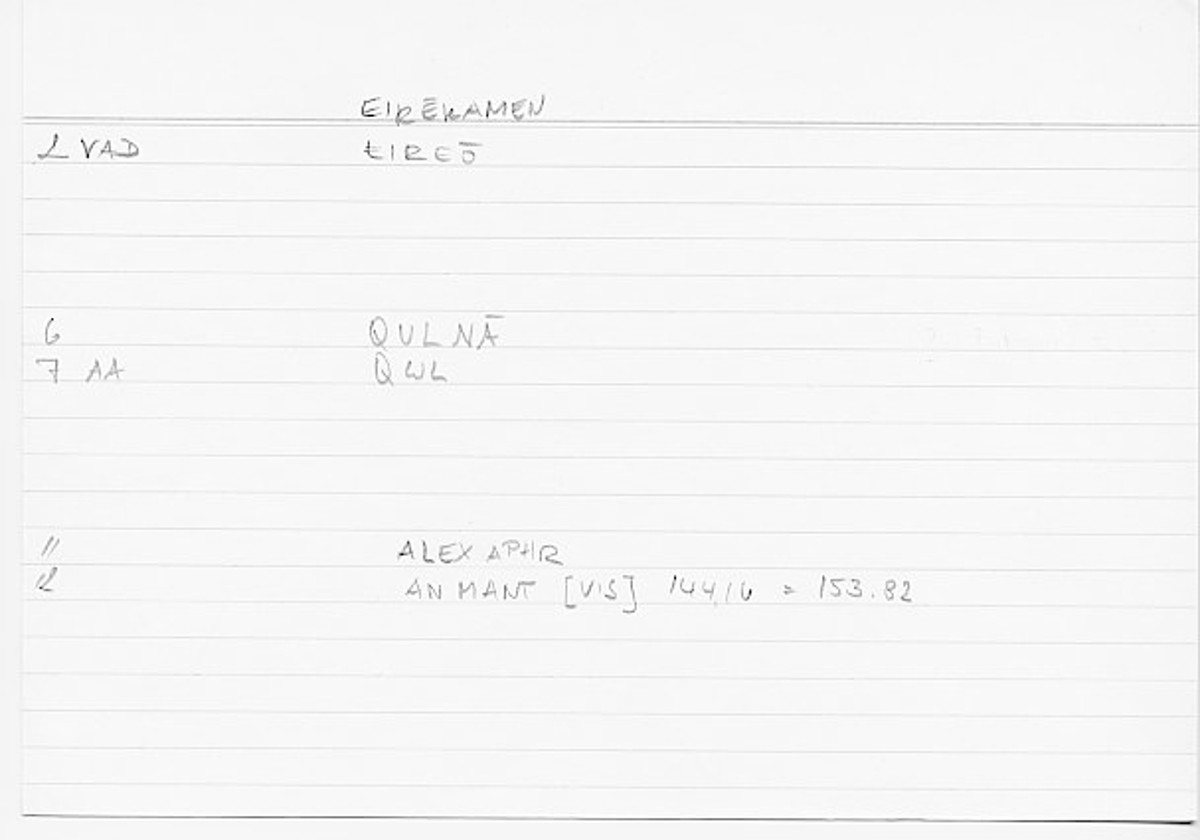 EIRĒKAMEN
1 VAD EIREŌ
6 QULNĀ
7 AA QWL
11 ALEX APHR
12 AN MANT [VIS] 144,16 = 153.82